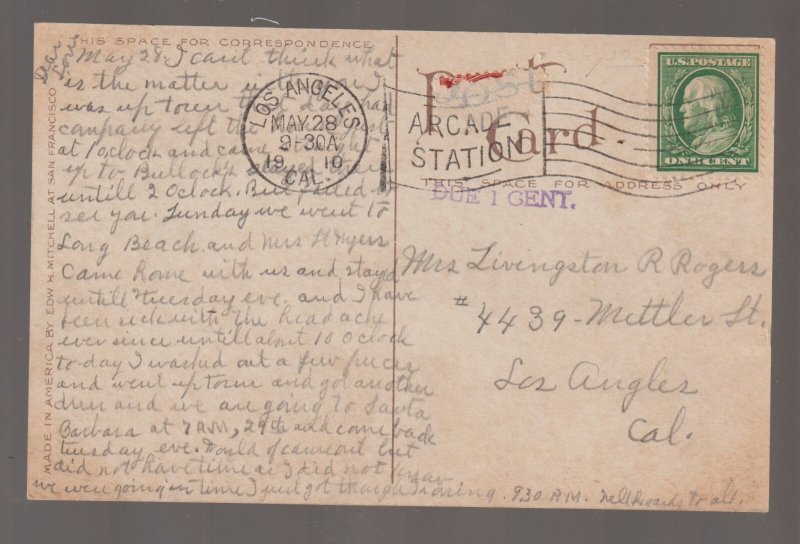 THIS SPACE FOR CORRESPONDENCE
Dear
May 28. I can't think what
is the matter with you I
was up town
company left the
at 1 oclock and came right
up to Bullock's
untill 2 Oclock. But failed to
see you. Sunday we went to
Long Beach and Mrs H Myers
Came home with us and stayd
untill Tuesday eve. and I have
been sick with the head ache
ever since untill about 10 Oclock
to-day I washed out a few pieces
and went up town and got another
dress and we are going to Santa
Barbara at 7 A.M, 29th and come back
tuesday eve. Would of came out but
did not have time as I did not know
we were going in time I just got through Ironing. 9.30 P.M. Well Regards to all.
MADE IN AMERICA BY EDW H. MITCHELL AT SAN FRANCISCO
Post
Card.
LOS ANGELES
MAY 28
9-30A
1910
CAL.
ARCADE
STATION
U.S. POSTAGE
ONE CENT
THIS SPACE FOR ADDRESS ONLY
DUE 1 CENT.
Mrs Livingston R Rogers
# 4439 - Mettler St.
Los Angles
Cal.